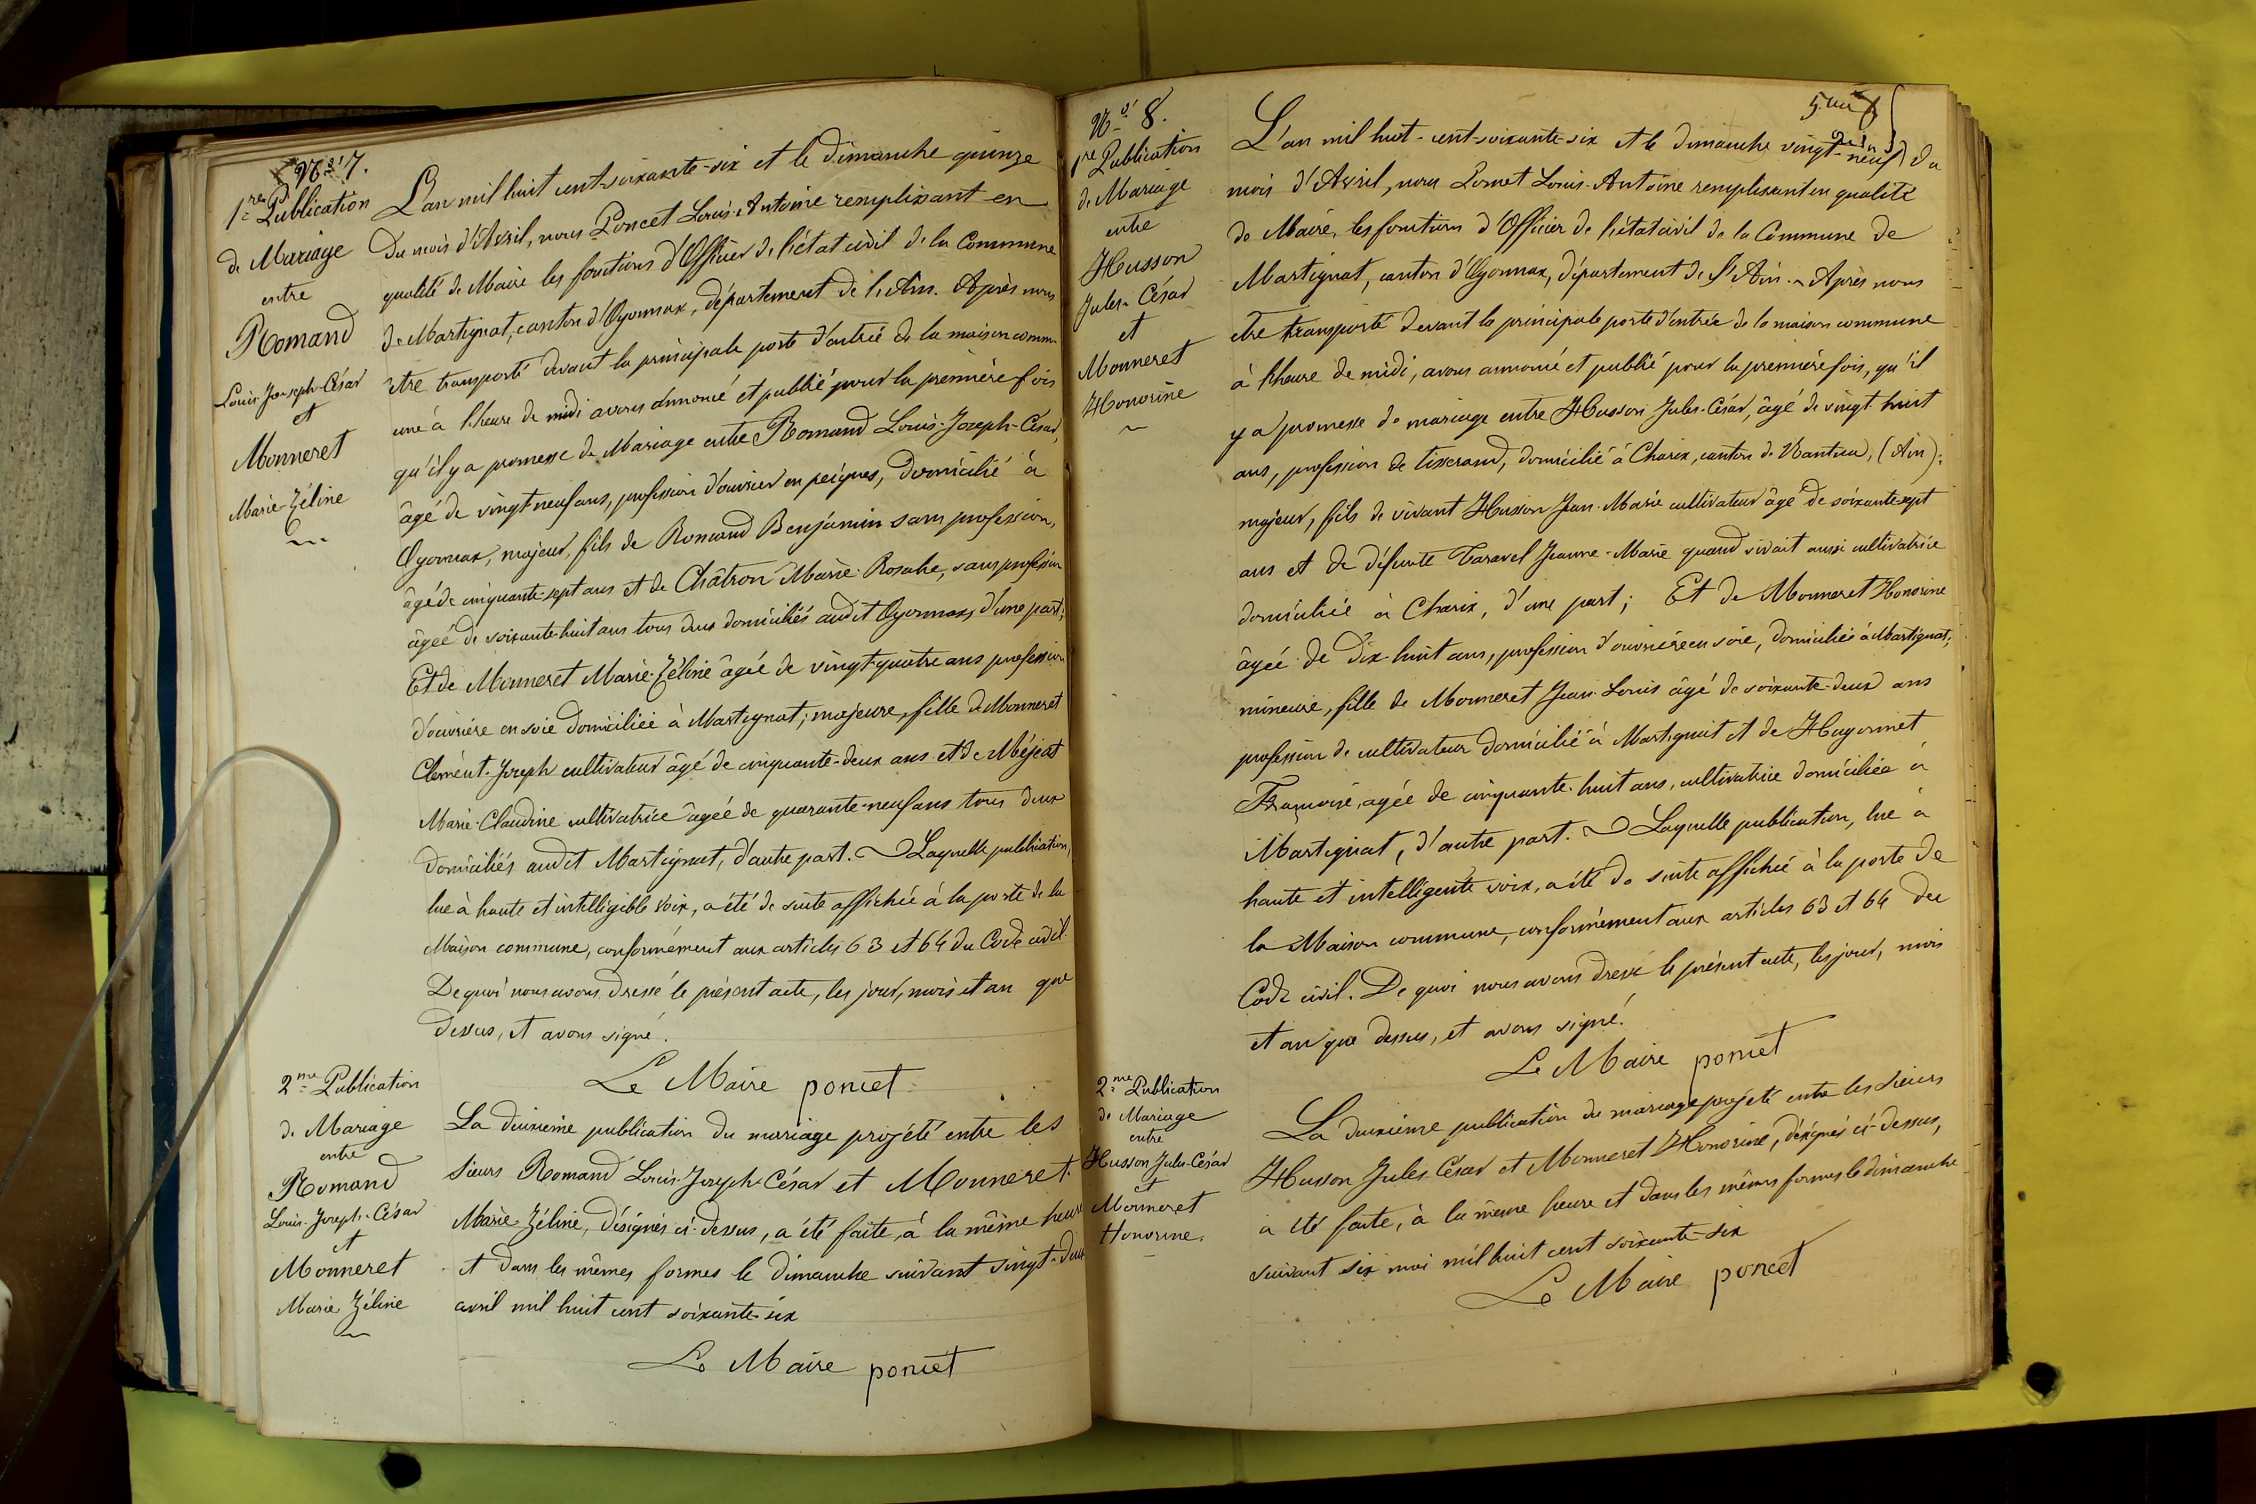 N° 7.
1re Publication
de Mariage
entre
Romand
Louis-Joseph-César
et
Monneret
Marie-Zéline
L'an mil huit cent soixante-six et le dimanche quinze
Du mois d'Avril, nous Poncet Louis-Antoine remplissant en
qualité de Maire les fonctions d'Officier de l'état civil de la Commune
de Martignat, canton d'Oyonnax, département de l'Ain. Après nous
être transporté devant la principale porte d'entrée de la maison comm-
une à l'heure de midi avons annoncé et publié pour la première fois
qu'il y a promesse de Mariage entre Romand Louis-Joseph-César,
âgé de vingt neuf ans, profession d'ouvrier en peignes, domicilié à
Oyonnax, majeur, fils de Romand Benjamin sans profession,
âgé de cinquante-sept ans et de Châtron Marie-Rosalie, sans profession
âgée de soixante-huit ans tous deux domiciliés audit Oyonnax, d'une part;
Et de Monneret Marie-Zéline âgée de vingt-quatre ans profession
d'ouvrière en soie domiciliée à Martignat; majeure, fille de Monneret
Clément-Joseph cultivateur âgé de cinquante-deux ans et de Méjeat
Marie-Claudine cultivatrice âgée de quarante-neuf ans tous deux
domiciliés audit Martignat, d'autre part. Laquelle publication,
lue à haute et intelligible voix, a été de suite affichée à la porte de la
Maison commune, conformément aux articles 63 et 64 du Code civil.
De quoi nous avons dressé le présent acte, les jour, mois et an que
dessus, et avons signé.
Le Maire poncet
2me Publication
de Mariage
entre
Romand
Louis-Joseph-César
et
Monneret
Marie Zéline
La deuxième publication du mariage projété entre les
sieurs Romand Louis-Joseph-César et Monneret
Marie-Zéline, désignés ci-dessus, a été faite, à la même heure
et dans les mêmes formes le dimanche suivant vingt-deux
avril mil huit cent soixante-six
Le Maire poncet
N° 8.
1re Publication
de Mariage
entre
Husson
Jules-César
et
Monneret
Honorine
L'an mil huit-cent-soixante-six et le dimanche vingt-neuf du
mois d'Avril, nous Poncet Louis-Antoine remplissant en qualité
de Maire, les fonctions d'Officier de l'état civil de la Commune de
Martignat, canton d'Oyonnax, département de l'Ain. Après nous
être transporté devant la principale porte d'entrée de la maison commune
à l'heure de midi, avons annoncé et publié pour la première fois, qu'il
y a promesse de mariage entre Husson Jules-César, âgé de vingt-huit
ans, profession de tisserand, domicilié à Charix, canton de Nantua, (Ain);
majeur, fils de vivant Husson Jean-Marie cultivateur âgé de soixante sept
ans et de défunte Taravel Jeanne-Marie quand vivait aussi cultivatrice
domiciliée à Charix, d'une part; Et de Monneret Honorine
âgée de dix huit ans, profession d'ouvrière en soie, domiciliée à Martignat;
mineure, fille de Monneret Jean Louis âgé de soixante-deux ans
profession de cultivateur domicilié à Martignat et de Hugonnet
Françoise, agée de cinquante-huit ans, cultivatrice domiciliée à
Martignat, d'autre part. Laquelle publication, lue à
haute et intelligente voix, a été de suite affichée à la porte de
la Maison commune, conformément aux articles 63 et 64 du
Code civil. De quoi nous avons dressé le présent acte, les jour, mois
et an que dessus, et avons signé.
Le Maire poncet
2me Publication
de Mariage
entre
Husson Jules-César
et
Monneret
Honorine.
La deuxième publication du mariage projeté entre les sieurs
Husson Jules César et Monneret Honorine, désignés ci-dessus,
a été faite, à la même heure et dans les mêmes formes le dimanche
suivant six mai mil huit cent soixante-six
Le Maire poncet